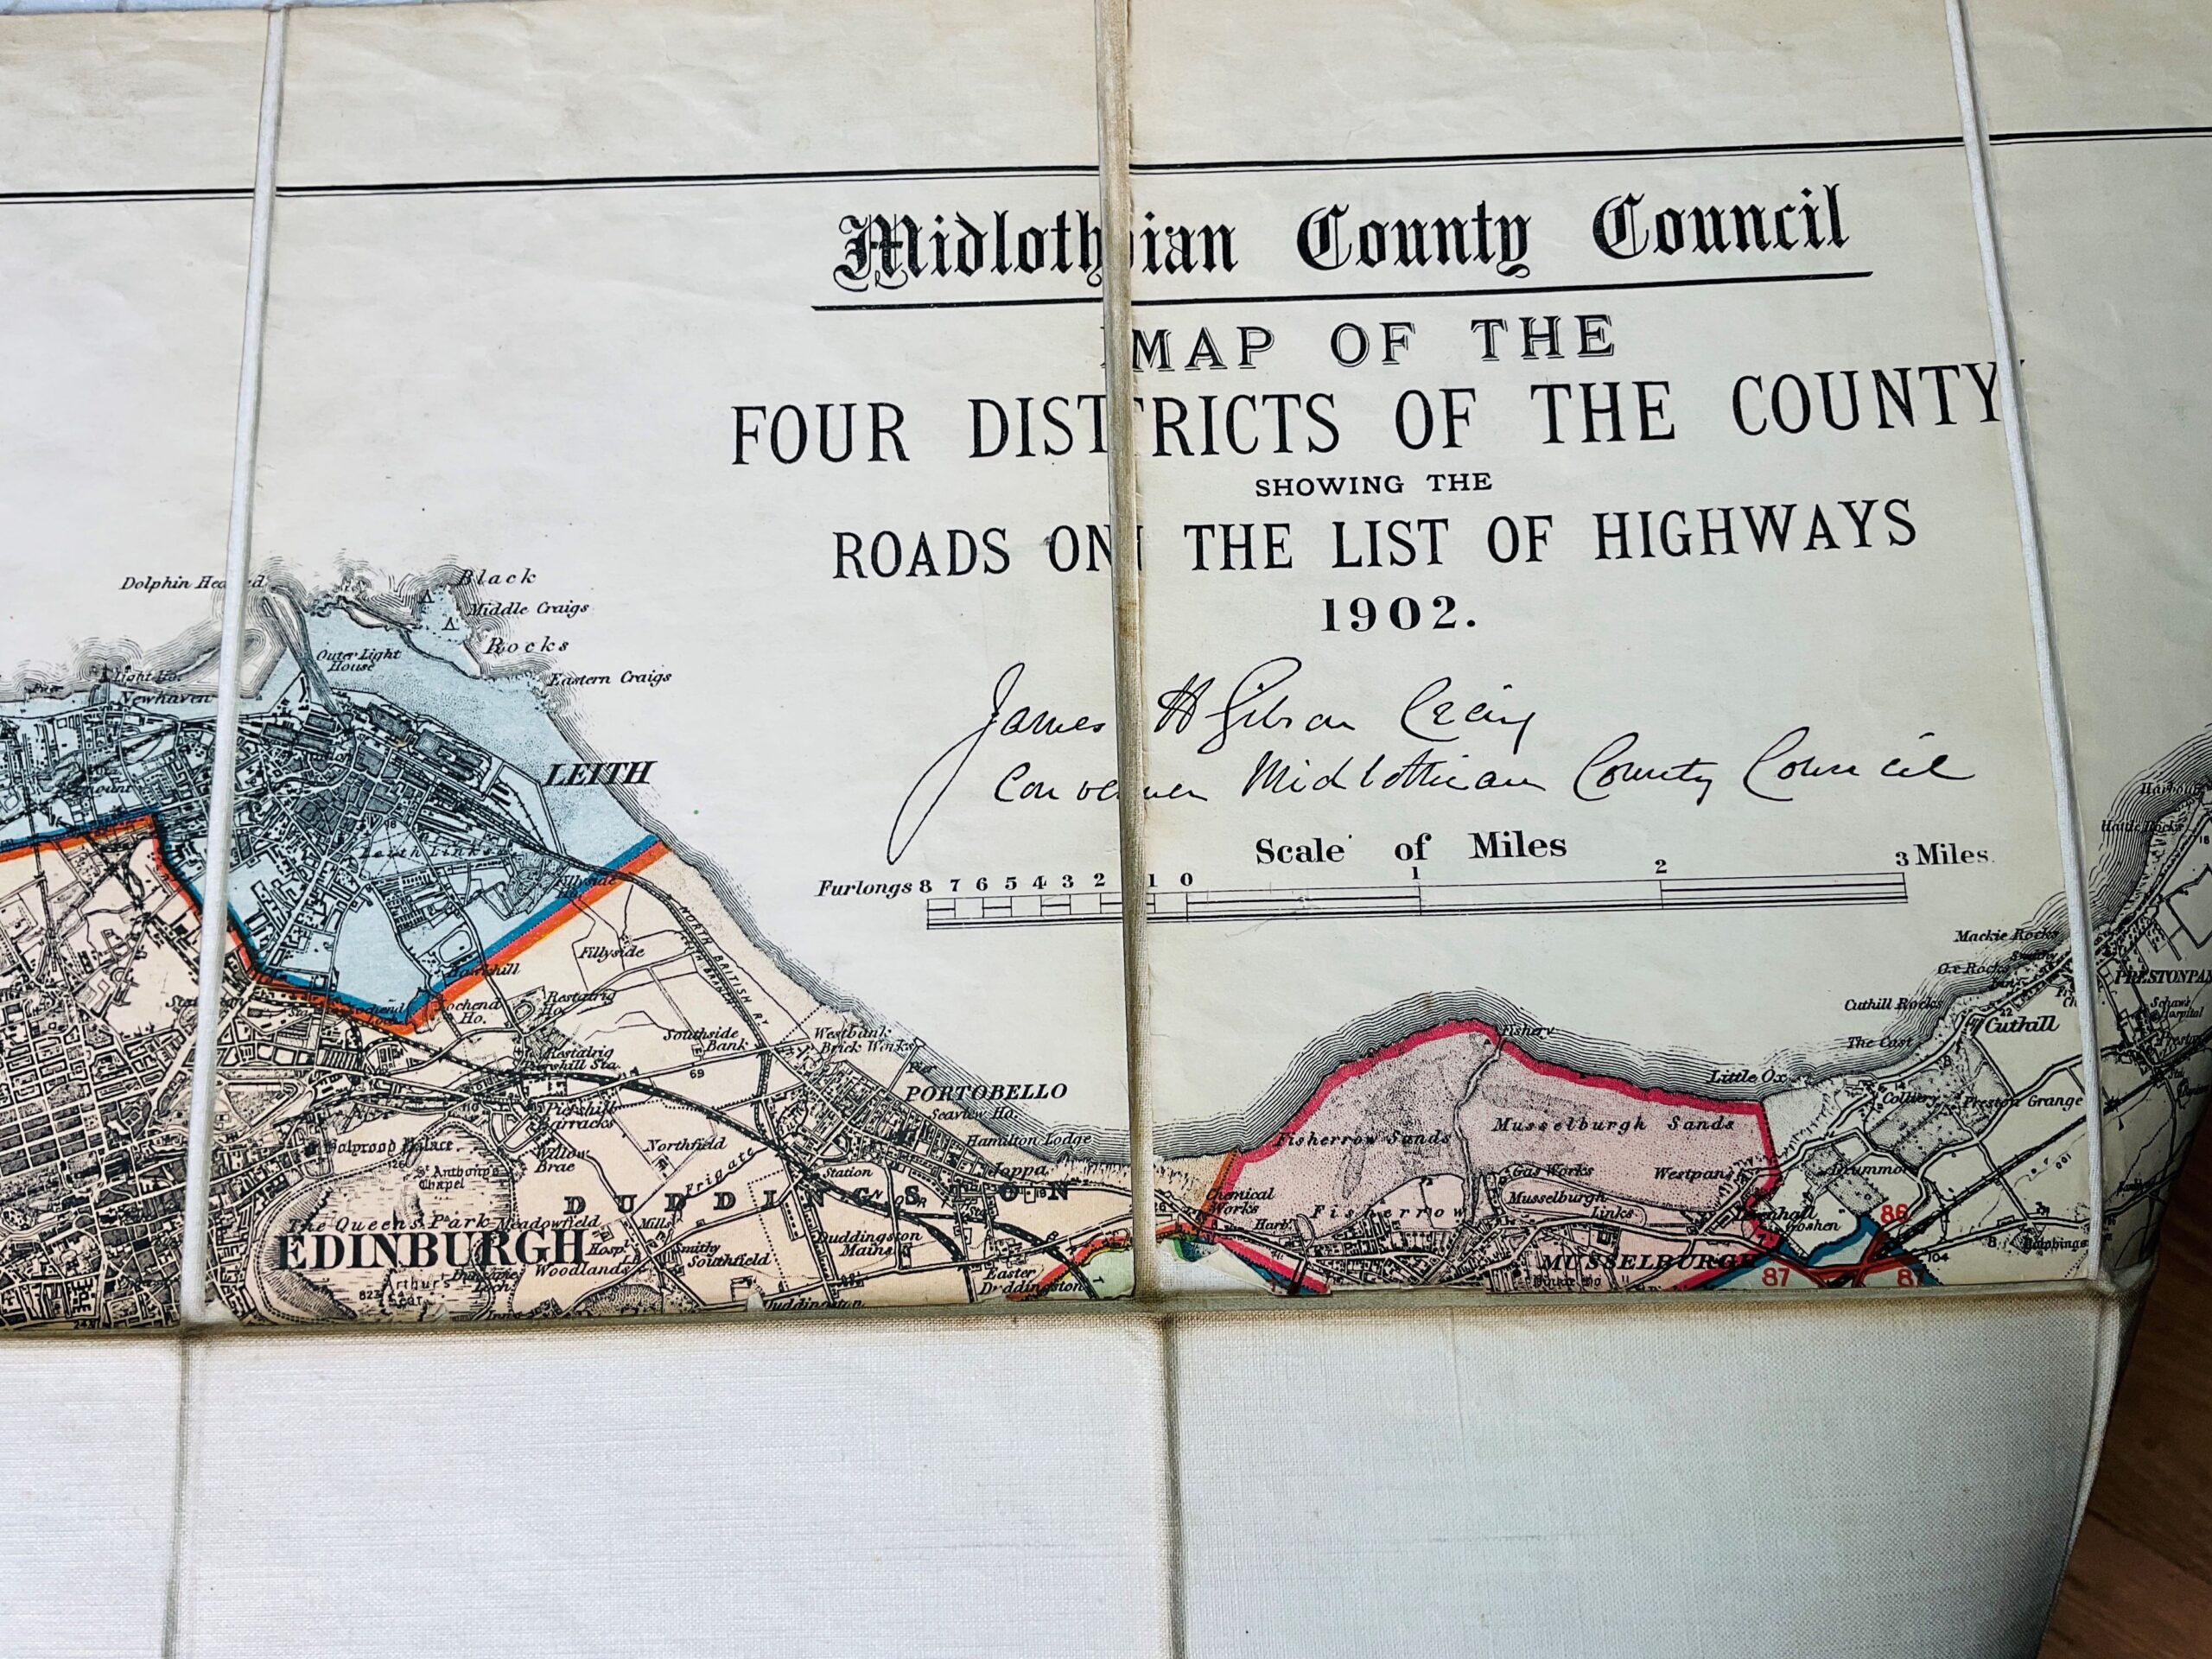 Midlothian County Council
MAP OF THE
FOUR DISTRICTS OF THE COUNTY
SHOWING THE
ROADS ON THE LIST OF HIGHWAYS
1902.
James H Gibson Craig
Convener Midlothian County Council
Scale of Miles
Furlongs 8 7 6 5 4 3 2 1 0 1 2 3 Miles.
Black
Middle Craigs
Rocks
Eastern Craigs
Outer Light
House
Light Ho.
Newhaven
LEITH
Leith Links
Fillyside
Fillyside
NORTH BRITISH RY
Lochend
Ho.
Restalrig
Ho.
Restalrig
Piershill Sta.
Southside
Bank
69
Westbank
Brick Works
Pier
PORTOBELLO
Seaview Ho.
Hamilton Lodge
Joppa
Station
Piershill
Barracks
Northfield
Willow
Brae
Frigate
Holyrood Palace
St. Anthony's
Chapel
DUDDINGSTON
The Queens Park
Meadowfield
Mills
EDINBURGH
Hospl.
Woodlands
Smithy
Southfield
Duddingston
Mains
Arthur's
Seat
Easter
Duddingston
Duddingston
Fishery
Fisherrow Sands
Musselburgh Sands
Chemical
Works
Harbr.
Fisherrow
Gas Works
Musselburgh
Links
Westpans
MUSSELBURGH
Little Ox
Mackie Rocks
Cuthill Rocks
Cuthill
The Cast
Colliery
Preston Grange
Drummore
Goshen
86
87
87
104
Dolphingstone